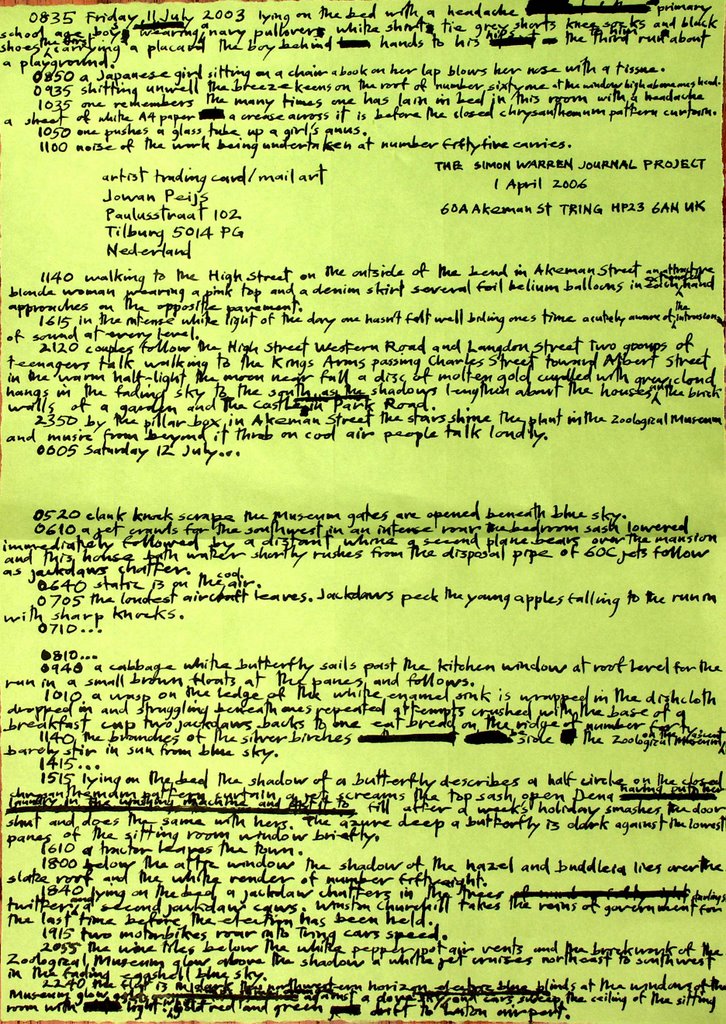 0835 Friday 11 July 2003 lying on the bed with a headache primary
school age boy wearing navy pullover white shirt tie grey shorts knee socks and black
shoes carrying a placard the boy behind hands to his the third run about
a playground.
0850 a Japanese girl sitting on a chair a book on her lap blows her nose with a tissue.
0935 shitting unwell the breeze keens on the roof of number sixty one at the window high above ones head.
1035 one remembers the many times one has lain in bed in this room with a headache
a sheet of white A4 paper a crease across it is before the closed chrysanthemum pattern curtain.
1100 noise of the work being undertaken at number fiftyfive carries.
THE SIMON WARREN JOURNAL PROJECT
1 April 2006
60A Akeman St TRING HP23 6AH UK
artist trading card/mail art
Jowan Peijs
Paulusstraat 102
Tilburg 5014 PG
Nederland
1140 walking to the High Street on the outside of the bend in Akeman Street an attractive
blonde woman wearing a pink top and a denim skirt several foil helium balloons in hand
approaches on the opposite pavement.
1615 in the intense white light of the day one hasn't felt well biding ones time acutely aware of the intrusion
of sound at every level.
2120 couples follow the High Street Western Road and Langdon Street two groups of
teenagers talk walking to the Kings Arms passing Charles Street toward Albert Street
in the warm half-light the moon near full a disc of molten gold curdled with grey cloud
hangs in the fading sky to the south as the shadows lengthen about the houses the brick
walls of a garden and the in Park Road.
2350 by the pillar box in Akeman Street the stars shine the plant in the Zoological Museum
and music from beyond it throb on cool air people talk loudly.
0005 Saturday 12 July...
0520 clank knock scrape the Museum gates are opened beneath blue sky.
0610 a jet the southwest in an intense roar the bedroom sash lowered
immediately followed by a distant whine a second plane bears over the mansion
and this house bath water shortly rushes from the disposal pipe of 60C jets follow
as jackdaws chatter.
0640 static is on the cool air.
0705 the loudest aircraft leaves. Jackdaws peck the young apples falling to the run
with sharp knocks.
0710...
0810...
0940 a cabbage white butterfly sails past the kitchen window at roof level for the
run in a small brown floats at the panes and follows.
1010 a wasp on the ledge of the white enamel sink is wrapped in the dishcloth
dropped in and struggling beneath ones repeated attempts crushed with the base of a
breakfast cup two jackdaws backs to one eat bread on the ridge of number forty
1140 the branches of the silver birches side the Zoological Museum
barely stir in sun from blue sky.
1415...
1515 lying on the bed the shadow of a butterfly describes a half circle on the closed
chrysanthemum pattern curtain a jet screams the top sash open Dena
fill after a week's holiday smashes the door
shut and does the same with hers. The azure deep a butterfly is dark against the lowest
panes of the sitting room window briefly.
1610 a tractor leaves the town.
1800 below the attic window the shadow of the hazel and buddleia lies over the
slate roof and the white render of number fiftyeight.
1840 lying on the bed a jackdaw chatters in the trees
twitters a second jackdaw caws. Winston Churchill takes the reins of government for
the last time before the election has been held.
1915 two motorbikes roar into Tring cars speed.
2055 the tiles below the white pepper pot air vents and the brickwork of the
Zoological Museum glow above the shadow a white jet cruises northeast to southwest
in the fading eggshell blue sky.
2240 the flat is in northwestern horizon blinds at the windows of the
Museum glow against a sky and cars sweep the ceiling of the sitting
room with light red and green drift to Luton airport.